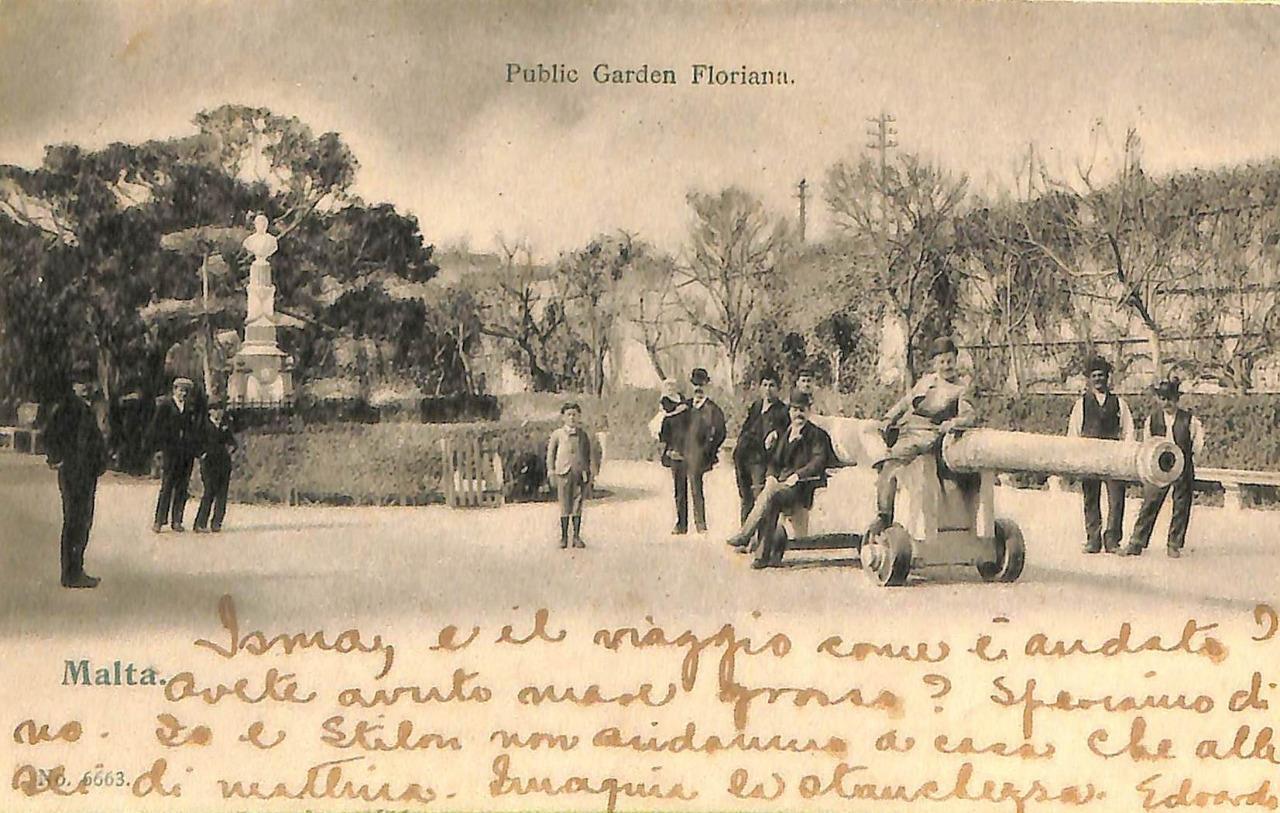 Public Garden Floriana.
Isma, e il viaggio come è andato?
Malta.
avete avuto mare grosso? Speriamo di
no. Io e Stilon non andammo a casa che alle
sei di mattina. Imagina la stanchezza. Edoardo
No. 6663.